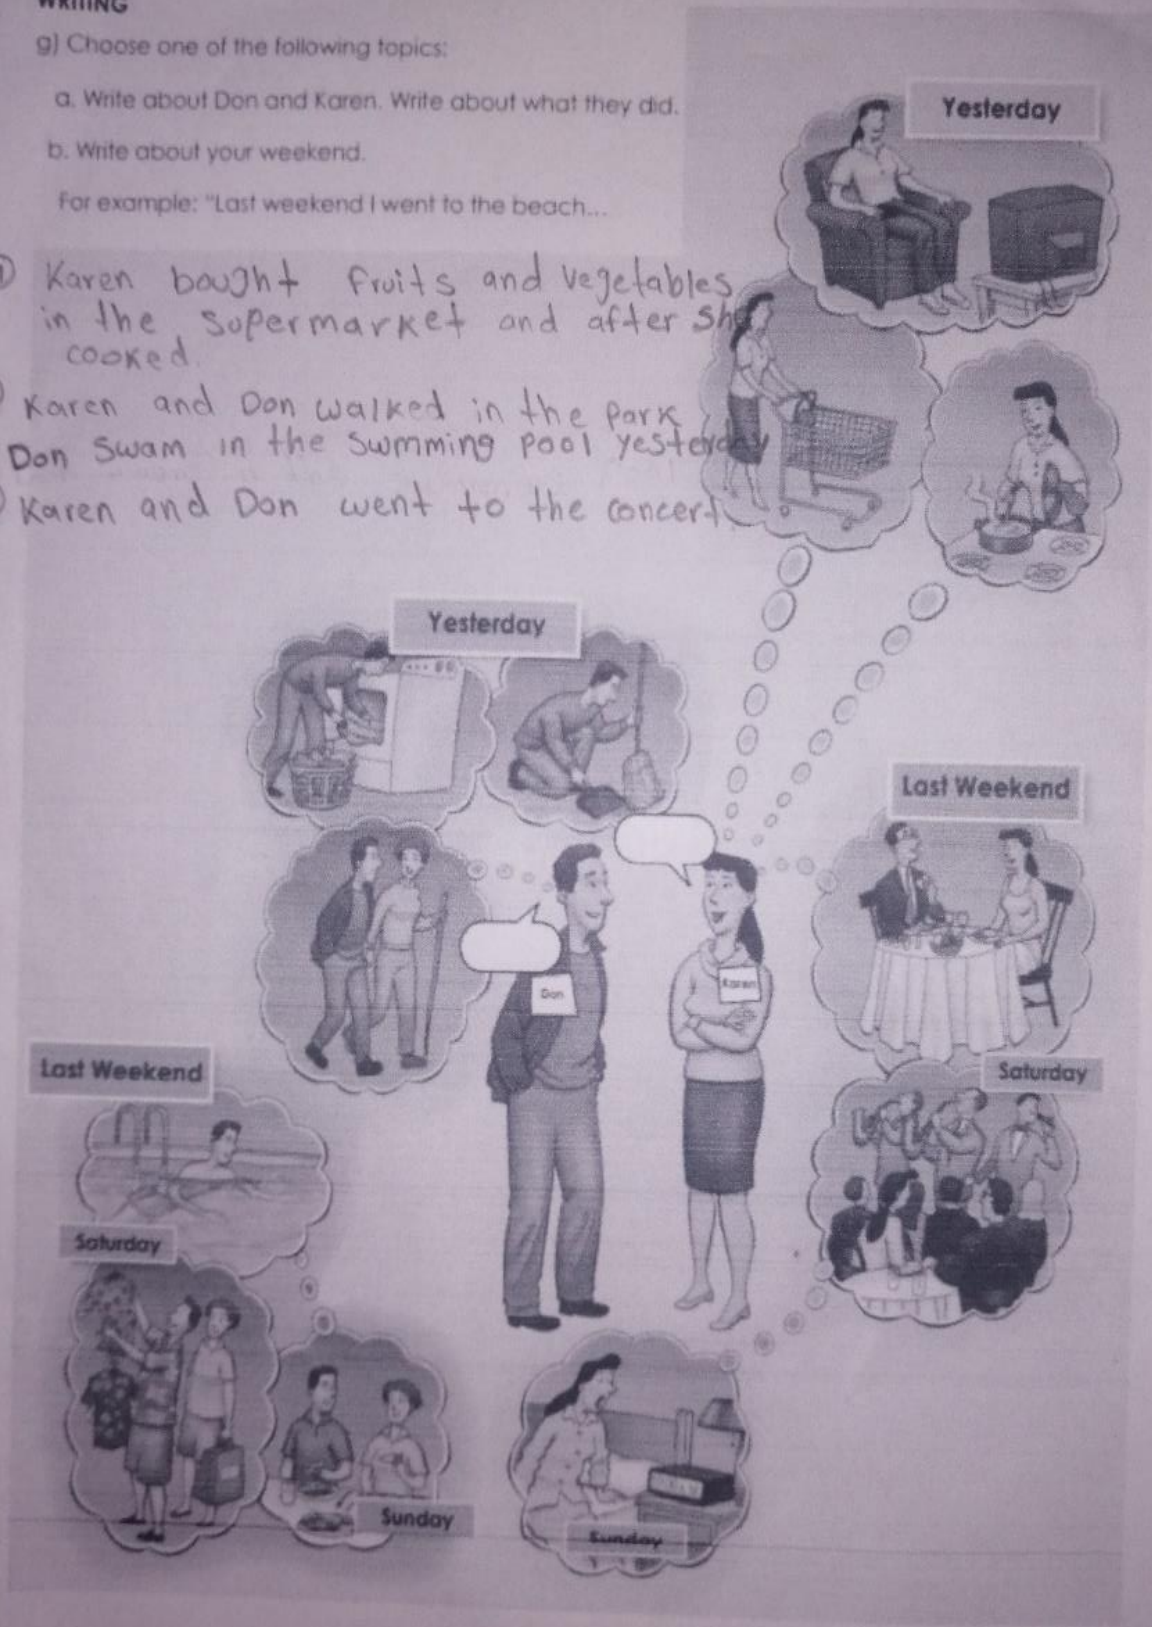 WRITING
g) Choose one of the following topics:
a. Write about Don and Karen. Write about what they did.
b. Write about your weekend.
For example: "Last weekend I went to the beach...
Yesterday
Karen bought fruits and vegetables
in the supermarket and after she
cooked.
Karen and Don walked in the park
Don swam in the swmming pool yesterday
Karen and Don went to the concert
Yesterday
Last Weekend
Don
Karen
Last Weekend
Saturday
Saturday
Sunday
Sunday